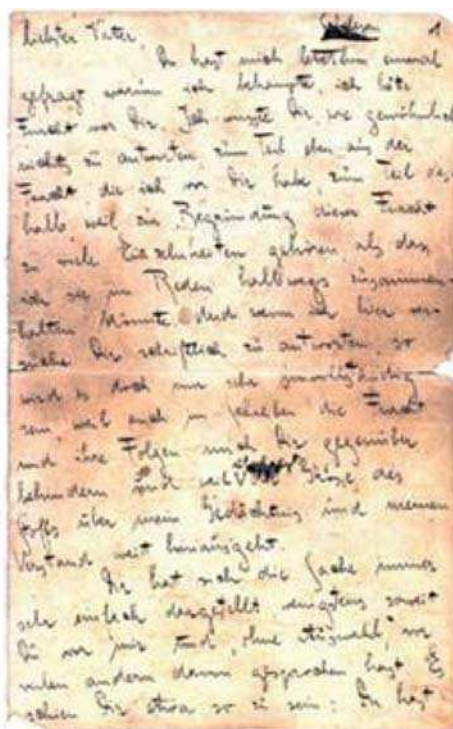 1
Liebster Vater,
Du hast mich letzthin einmal
gefragt warum ich behaupte, ich hätte
Furcht vor Dir. Ich wusste Dir, wie gewöhnlich
nichts zu antworten, zum Teil eben aus der
Furcht die ich vor Dir habe, zum Teil des-
halb weil zur Begründung dieser Furcht
zu viele Einzelnheiten gehören, als dass
ich sie im Reden halbwegs zusammen-
halten könnte. Und wenn ich hier ver-
suche Dir schriftlich zu antworten, so
wird es doch nur sehr unvollständig
sein, weil auch im Schreiben die Furcht
und ihre Folgen mich Dir gegenüber
behindern und weil die Grösse des
Stoffs über mein Gedächtnis und meinen
Verstand weit hinausgeht.
Dir hat sich die Sache immer
sehr einfach dargestellt, wenigstens soweit
Du vor mir und, ohne Auswahl, vor
vielen andern davon gesprochen hast. Es
schien Dir etwa so zu sein: Du hast